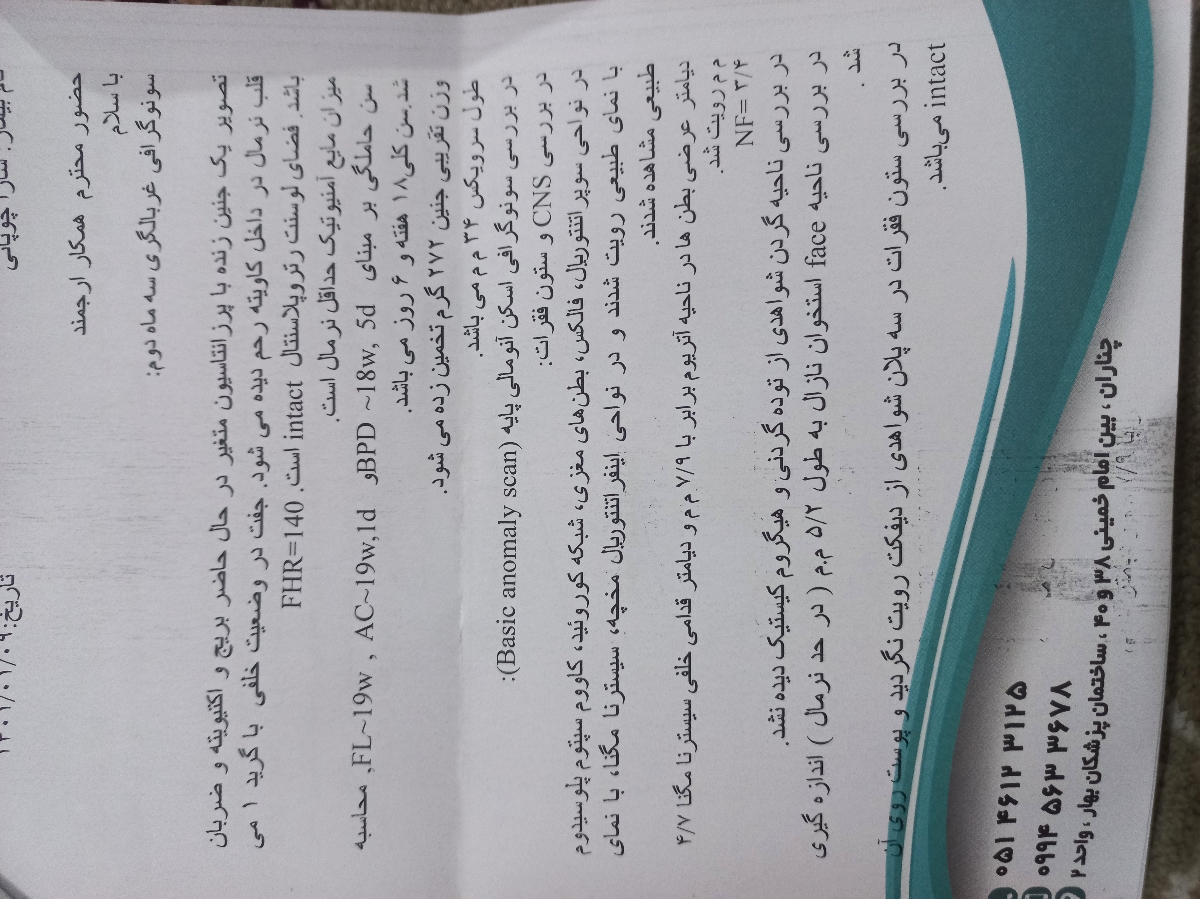 تاریخ: ۱۴۰۲/۰۱/۰۹
نام بیمار: سارا چوپانی
حضور محترم همکار ارجمند
با سلام
سونوگرافی غربالگری سه ماه دوم:
تصویر یک جنین زنده با پرزانتاسیون متغیر در حال حاضر بریچ و اکتیویته و ضربان
قلب نرمال در داخل کاویته رحم دیده می شود. جفت در وضعیت خلفی با گرید ۱ می
باشد. فضای لوسنت رتروپلاسنتال intact است. FHR=140
میزان مایع آمنیوتیک حداقل نرمال است.
سن حاملگی بر مبنای BPD ~18w, 5d و FL~19w , AC~19w,1d, محاسبه
شد.سن کلی۱۸ هفته و ۶ روز می باشد.
وزن تقریبی جنین ۲۷۲ گرم تخمین زده می شود.
طول سرویکس ۳۴ م م می باشد.
در بررسی سونوگرافی اسکن آنومالی پایه (Basic anomaly scan):
در بررسی CNS و ستون فقرات:
در نواحی سوپراتنتوریال، فالکس، بطن‌های مغزی، شبکه کوروئید، کاووم سپتوم پلوسیدوم
با نمای طبیعی رویت شدند و در نواحی اینفراتنتوریال مخچه، سیسترنا مگنا، با نمای
طبیعی مشاهده شدند.
دیامتر عرضی بطن ها در ناحیه آتریوم برابر با ۷/۹ م م و دیامتر قدامی خلفی سیسترنا مگنا ۴/۷
م م رویت شد.
NF= ۳/۴
در بررسی ناحیه گردن شواهدی از توده گردنی و هیگروم کیستیک دیده نشد.
در بررسی ناحیه face استخوان نازال به طول ۵/۲ م.م ( در حد نرمال ) اندازه گیری
شد .
در بررسی ستون فقرات در سه پلان شواهدی از دیفکت رویت نگردید و پوست روی آن
intact می‌باشد.
۰۵۱ ۴۶۱۲ ۳۱۲۵
۰۹۹۴ ۵۶۳ ۳۶۷۸
چناران ، بین امام خمینی ۳۸ و ۴۰ ، ساختمان پزشکان بهار ، واحد ۲